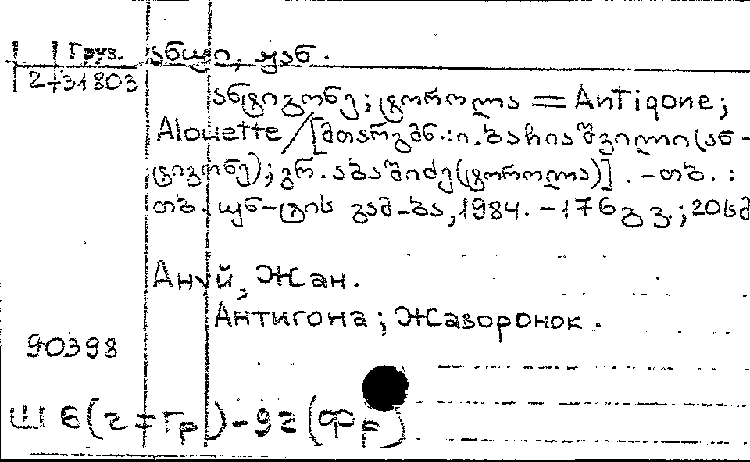 Груз. ანუი, ჟან.
2-31803
ანტიგონე; ტოროლა = Antigone;
Alouette / [მთარგმნ.: ი. ბარიაშვილი (ან-
ტიგონე); გრ. აბაშიძე (ტოროლა)]. - თბ.:
თბ. უნ-ტის გამ-ბა, 1984. - 176 გვ.; 20სმ
Ануй, Жан.
Антигона; Жаворонок.
90398
Ш 6(2=Гр)-9